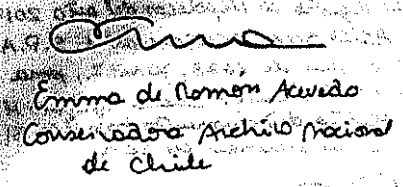 Emma de Ramón Acevedo
Conservadora Archivo Nacional
de Chile